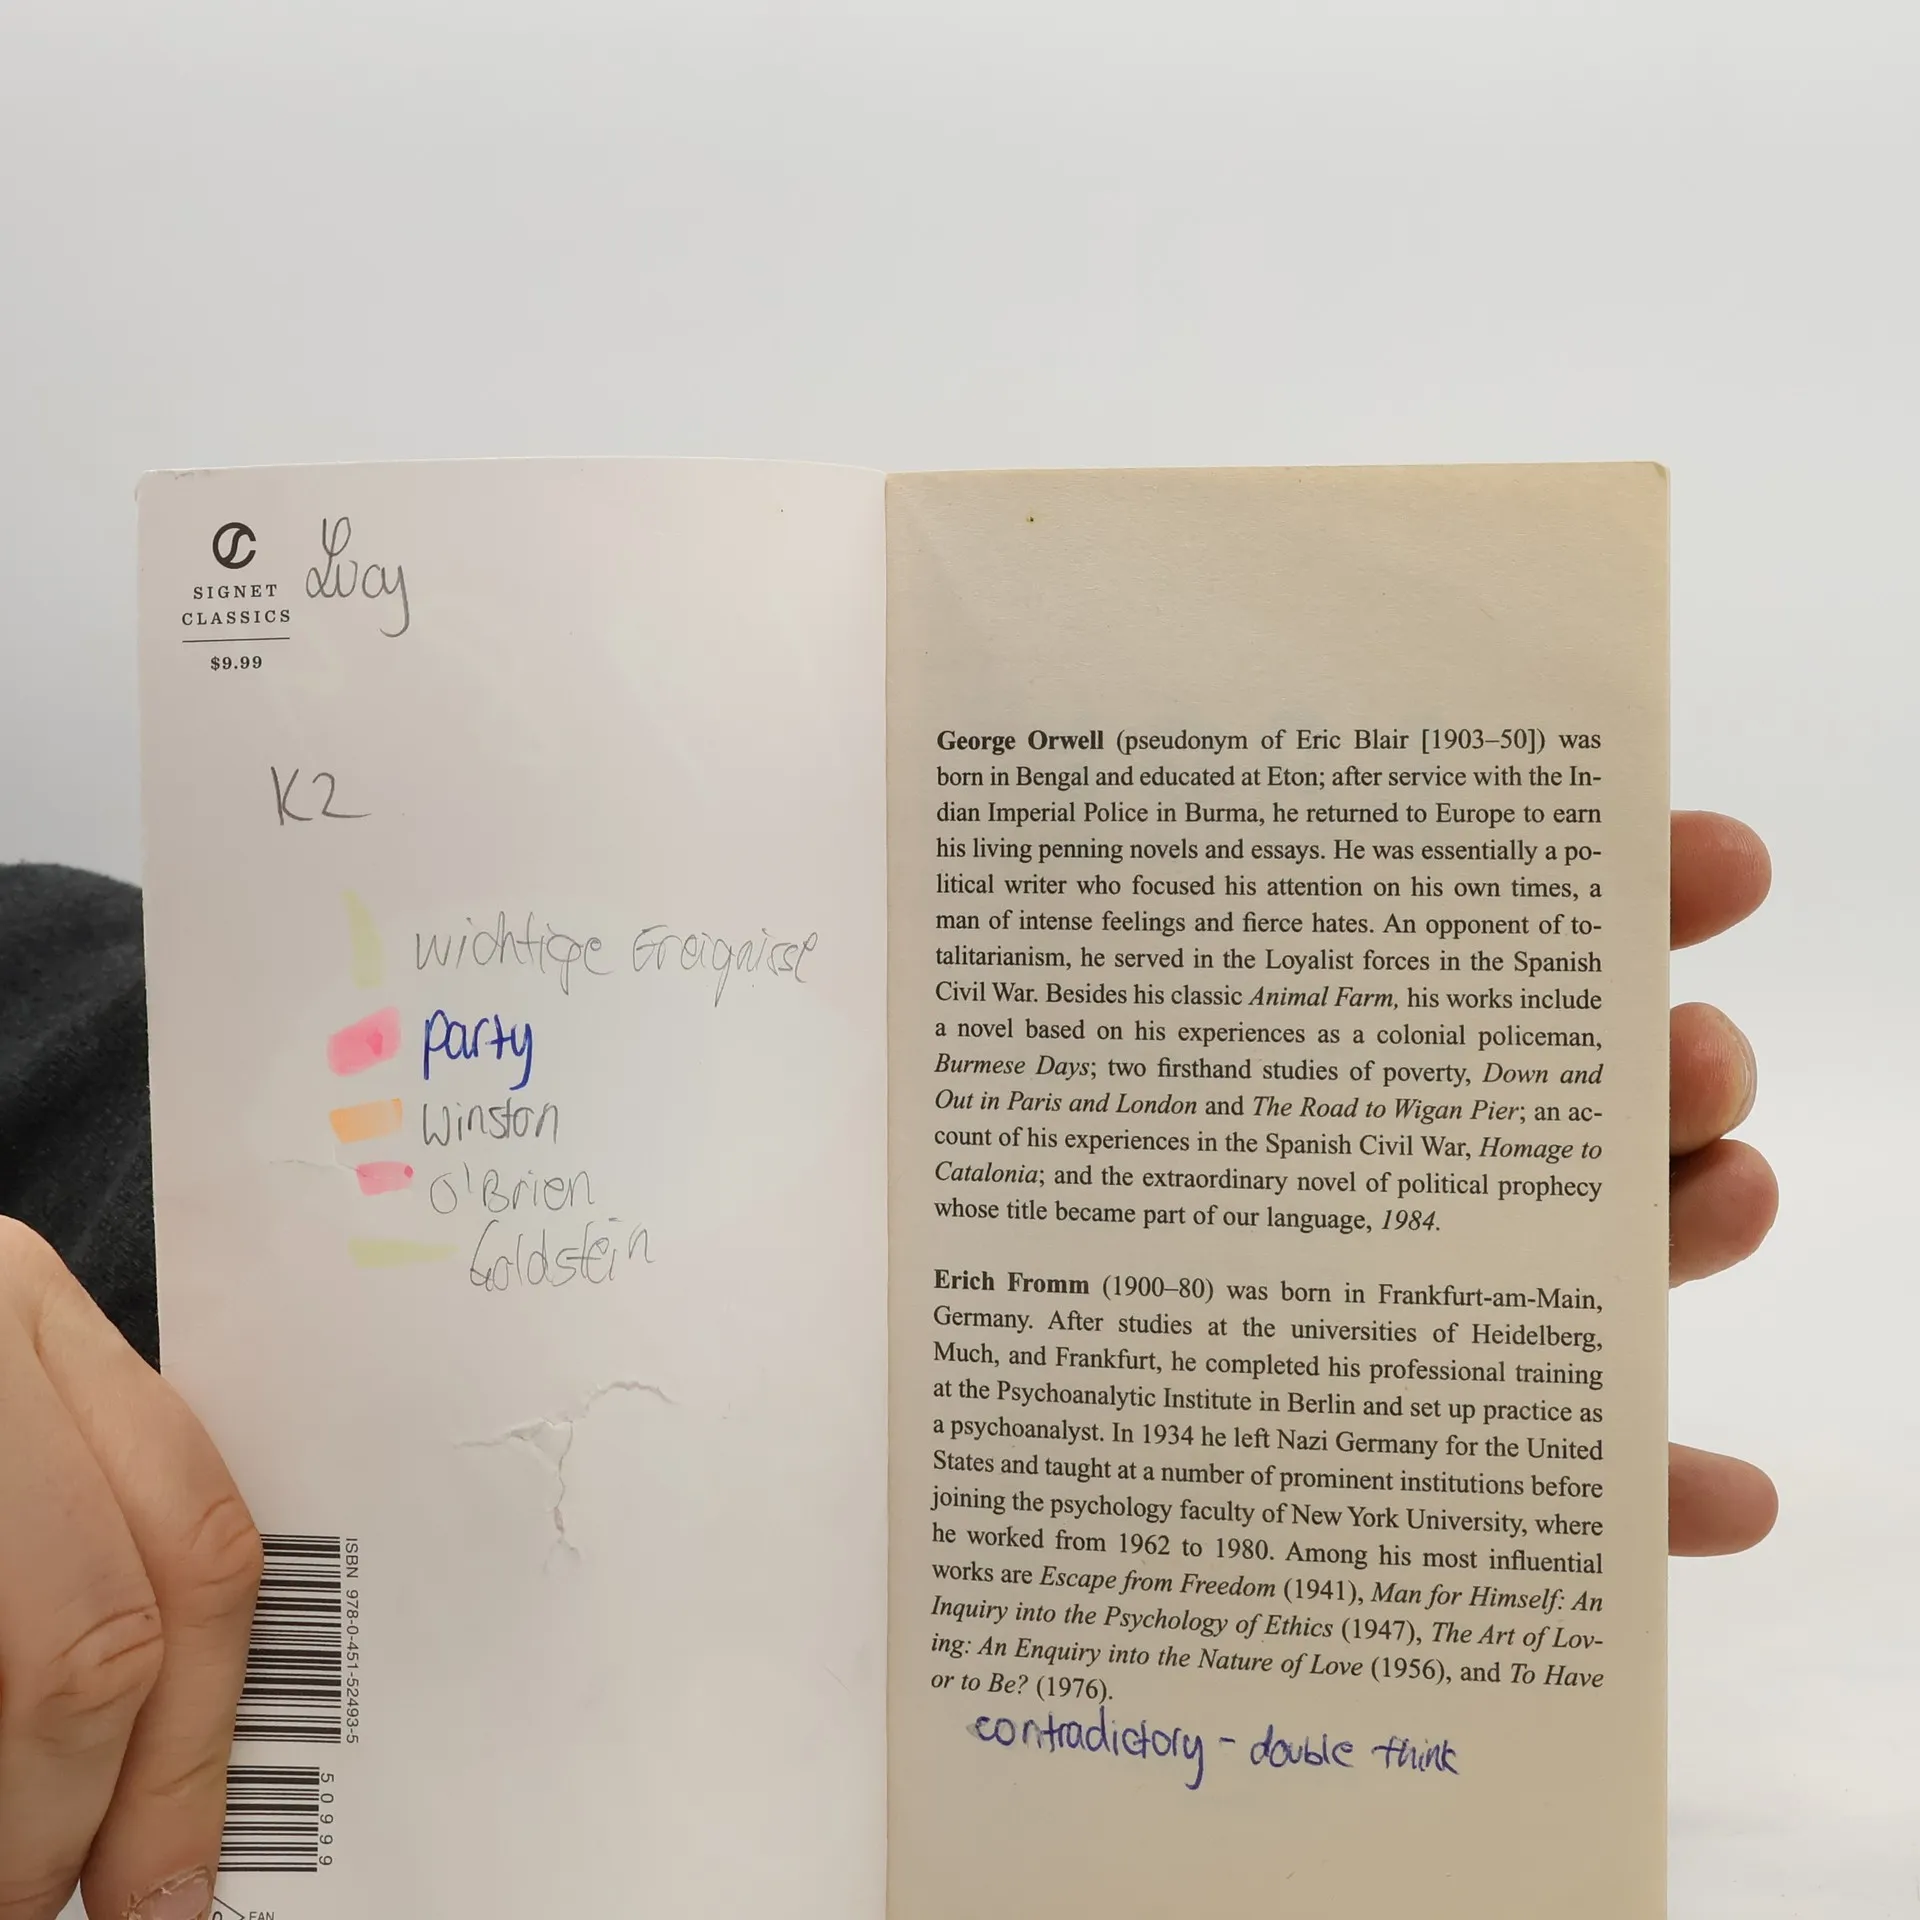 SIGNET
CLASSICS
$9.99
Lucy
K2
wichtige Ereignisse
party
Winston
O'Brien
Goldstein
ISBN 978-0-451-52493-5
50999
EAN
George Orwell (pseudonym of Eric Blair [1903–50]) was
born in Bengal and educated at Eton; after service with the In-
dian Imperial Police in Burma, he returned to Europe to earn
his living penning novels and essays. He was essentially a po-
litical writer who focused his attention on his own times, a
man of intense feelings and fierce hates. An opponent of to-
talitarianism, he served in the Loyalist forces in the Spanish
Civil War. Besides his classic Animal Farm, his works include
a novel based on his experiences as a colonial policeman,
Burmese Days; two firsthand studies of poverty, Down and
Out in Paris and London and The Road to Wigan Pier; an ac-
count of his experiences in the Spanish Civil War, Homage to
Catalonia; and the extraordinary novel of political prophecy
whose title became part of our language, 1984.
Erich Fromm (1900–80) was born in Frankfurt-am-Main,
Germany. After studies at the universities of Heidelberg,
Much, and Frankfurt, he completed his professional training
at the Psychoanalytic Institute in Berlin and set up practice as
a psychoanalyst. In 1934 he left Nazi Germany for the United
States and taught at a number of prominent institutions before
joining the psychology faculty of New York University, where
he worked from 1962 to 1980. Among his most influential
works are Escape from Freedom (1941), Man for Himself: An
Inquiry into the Psychology of Ethics (1947), The Art of Lov-
ing: An Enquiry into the Nature of Love (1956), and To Have
or to Be? (1976).
contradictory - double think